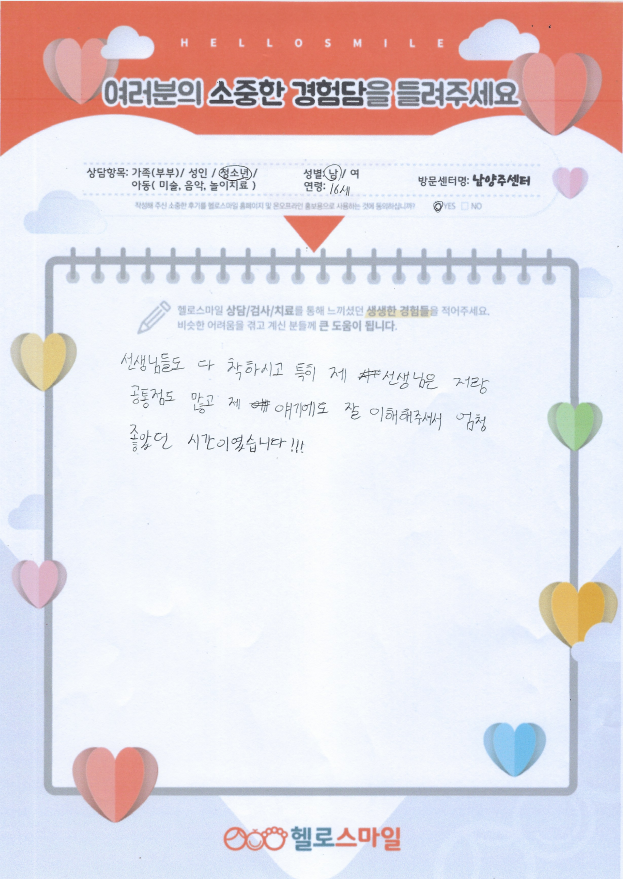 HELLOSMILE
여러분의 소중한 경험담을 들려주세요
상담항목: 가족(부부)/ 성인 / 청소년/ 성별: 남 / 여
아동( 미술, 음악, 놀이치료 ) 연령: 16세 방문센터명: 남양주센터
작성해 주신 소중한 후기를 헬로스마일 홈페이지 및 온오프라인 홍보용으로 사용하는 것에 동의하십니까? YES NO
헬로스마일 상담/검사/치료를 통해 느끼셨던 생생한 경험들을 적어주세요.
비슷한 어려움을 겪고 계신 분들께 큰 도움이 됩니다.
선생님들도 다 착하시고 특히 제 선생님은 저랑
공통점도 많고 제 얘기에도 잘 이해해주셔서 엄청
좋았던 시간이였습니다!!!
헬로스마일